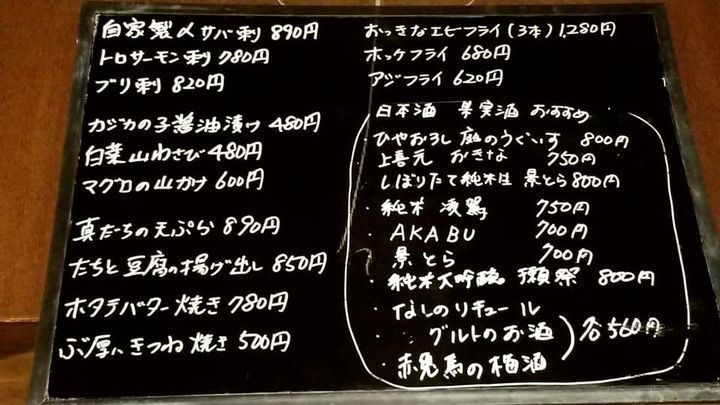 自家製〆サバ刺 890円
トロサーモン刺 780円
ブリ刺 820円
カジカの子醤油漬け 480円
白菜山わさび 480円
マグロの山かけ 600円
真だちの天ぷら 890円
たちと豆腐の揚げ出し 850円
ホタテバター焼き 780円
ぶ厚いきつね焼き 500円
おっきなエビフライ(3本) 1,280円
ホッケフライ 680円
アジフライ 620円
日本酒 果実酒 おすすめ
・ひやおろし 庭のうぐいす 800円
・上喜元 おきな 750円
・しぼりたて純米生 景とら 800円
・純米 凌駕 750円
・AKABU 700円
・景とら 700円
・純米大吟醸 獺祭 800円
・なしのリキュール
・グルトのお酒
・赤兎馬の梅酒
各560円